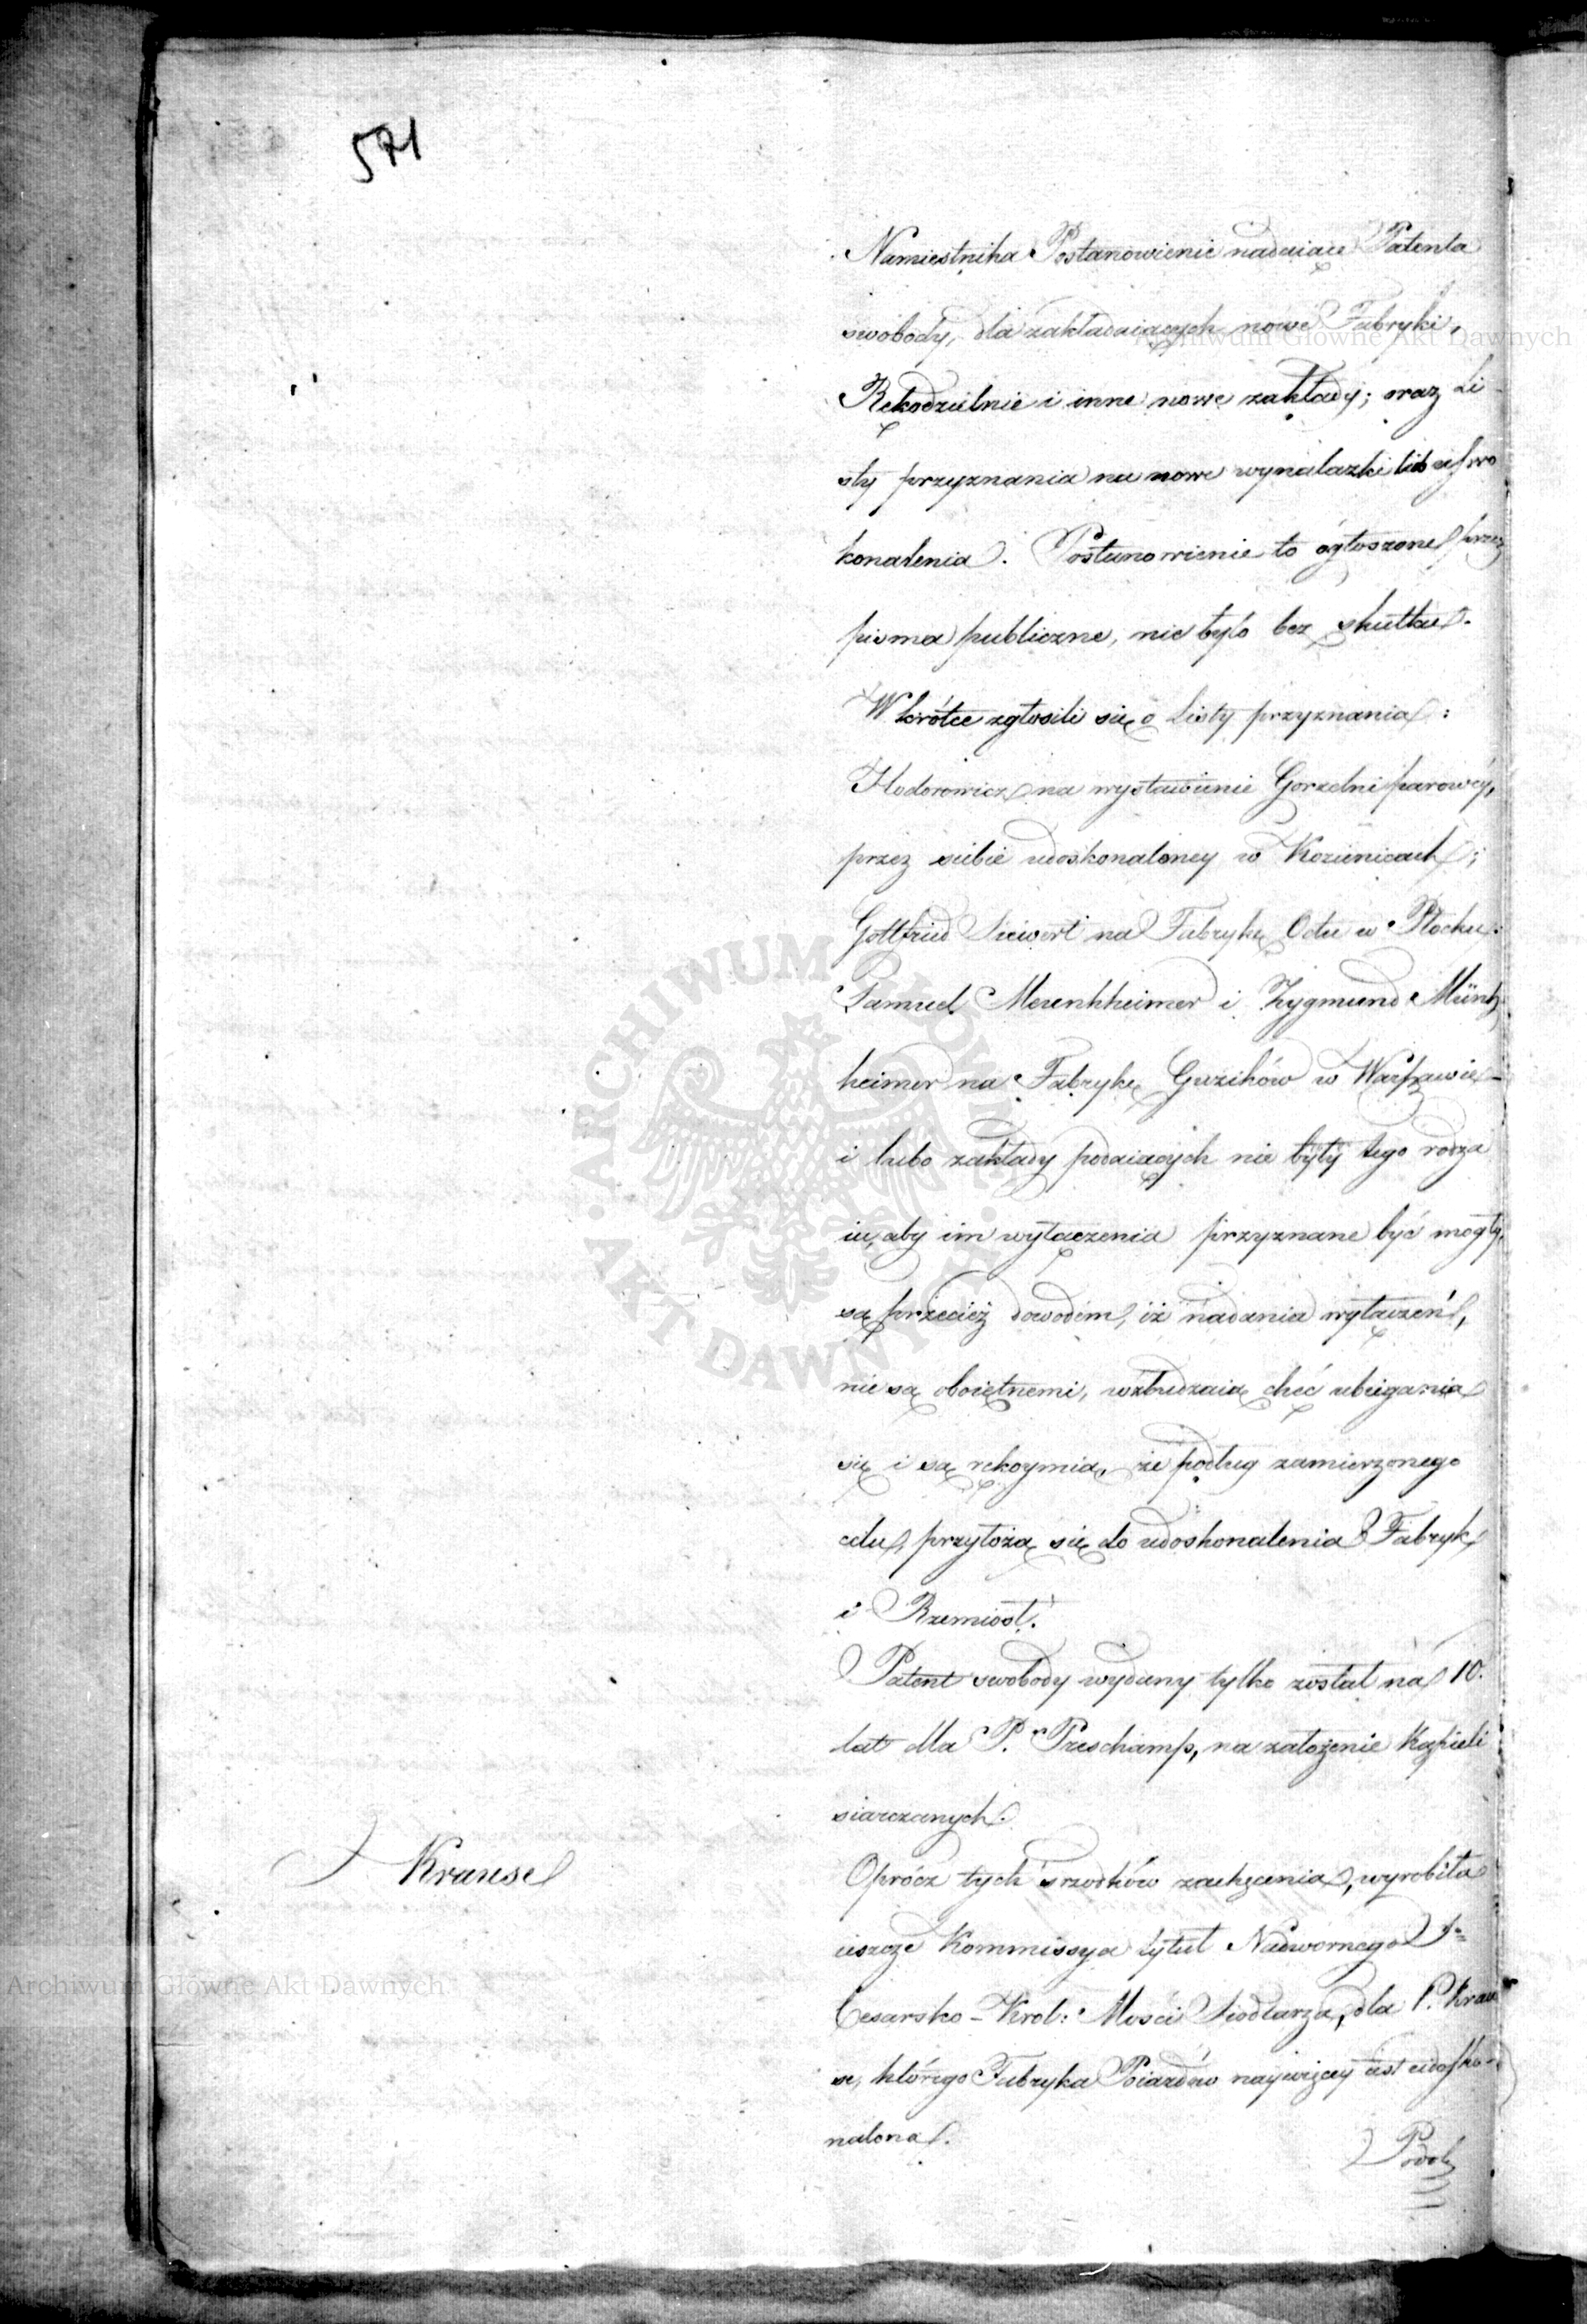 571
Namiestnika Postanowienie nadaiące Patenta
swobody, dla zakładaiących nowe Fabryki,
Rękodzielnie i inne nowe zakłady; oraz Li-
sty przyznania na nowe wynalazki lub udosko
konalenia. Postanowienie to ogłoszone przez
pisma publiczne, nie było bez skutku.
Wkrótce zgłosili się o Listy przyznania:
Hodorowicz na wystawienie Gorzelni parowéy,
przez siebie udoskonaloney w Kozienicach;
Gottfried Siewert na Fabrykę Octu w Płocku:
Samuel Merenhheimer i Zygmund Müntz
heimer na Fabrykę Guzików w Warszawie –
i lubo zakłady podaiących nie były tego rodza
iu, aby im wyłączenia przyznane być mogły,
są przecież dowodem, iż nadania wyłączeń,
nie są oboiętnemi, wzbudzaią chęć ubiegania
się i są rękoymią, że podług zamierzonego
celu, przyłożą się do udoskonalenia Fabryk
i Rzemiosł.
Patent swobody wydany tylko został na 10.
lat dla P. Preschamps, na założenie Kąpieli
siarczanych.
Krause
Oprócz tych srzodków zachęcenia, wyrobiła
ieszcze Kommissya tytuł Nadwornego J=
Cesarsko-Król: Mości Siodlarza, dla P. Krau
se, którego Fabryka Poiazdów naywięcéy iest udosko-
nalona.
Podob
Archiwum Główne Akt Dawnych
Archiwum Główne Akt Dawnych
ARCHIWUM GŁÓWNE AKT DAWNYCH